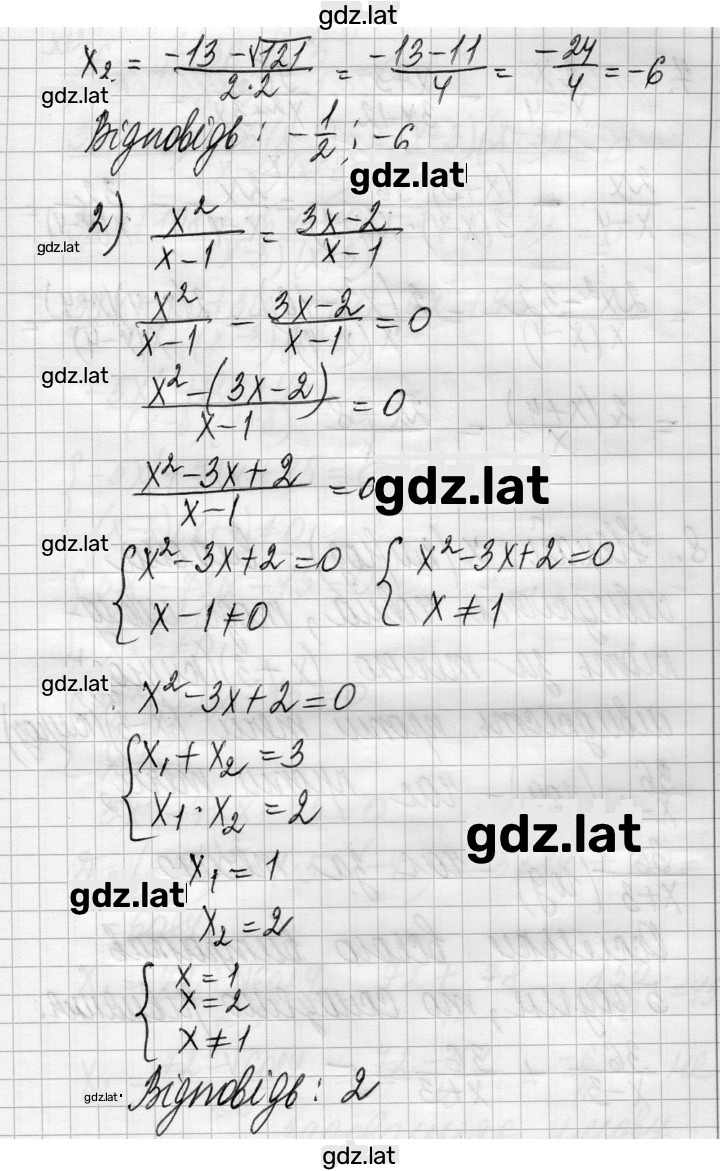 gdz.lat
x₂ = (-13 - √121)/(2·2) = (-13 - 11)/4 = -24/4 = -6
gdz.lat
Відповідь: -1/2; -6
gdz.lat
2) x²/(x-1) = (3x-2)/(x-1)
gdz.lat
x²/(x-1) - (3x-2)/(x-1) = 0
gdz.lat
(x²-(3x-2))/(x-1) = 0
(x²-3x+2)/(x-1) = 0
gdz.lat
gdz.lat
{ x²-3x+2=0 { x²-3x+2=0
x-1≠0 x≠1
gdz.lat
x²-3x+2=0
{ x₁+x₂=3
x₁·x₂=2
gdz.lat
x₁=1
gdz.lat
x₂=2
{ x=1
x=2
x≠1
gdz.lat
Відповідь: 2
gdz.lat